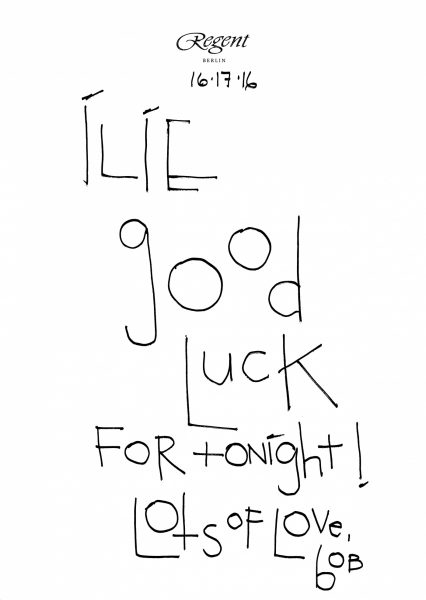 Regent
BERLIN
16·17·16
ILIE
good
Luck
FOR tONight!
LOts OF LOVe,
bOB